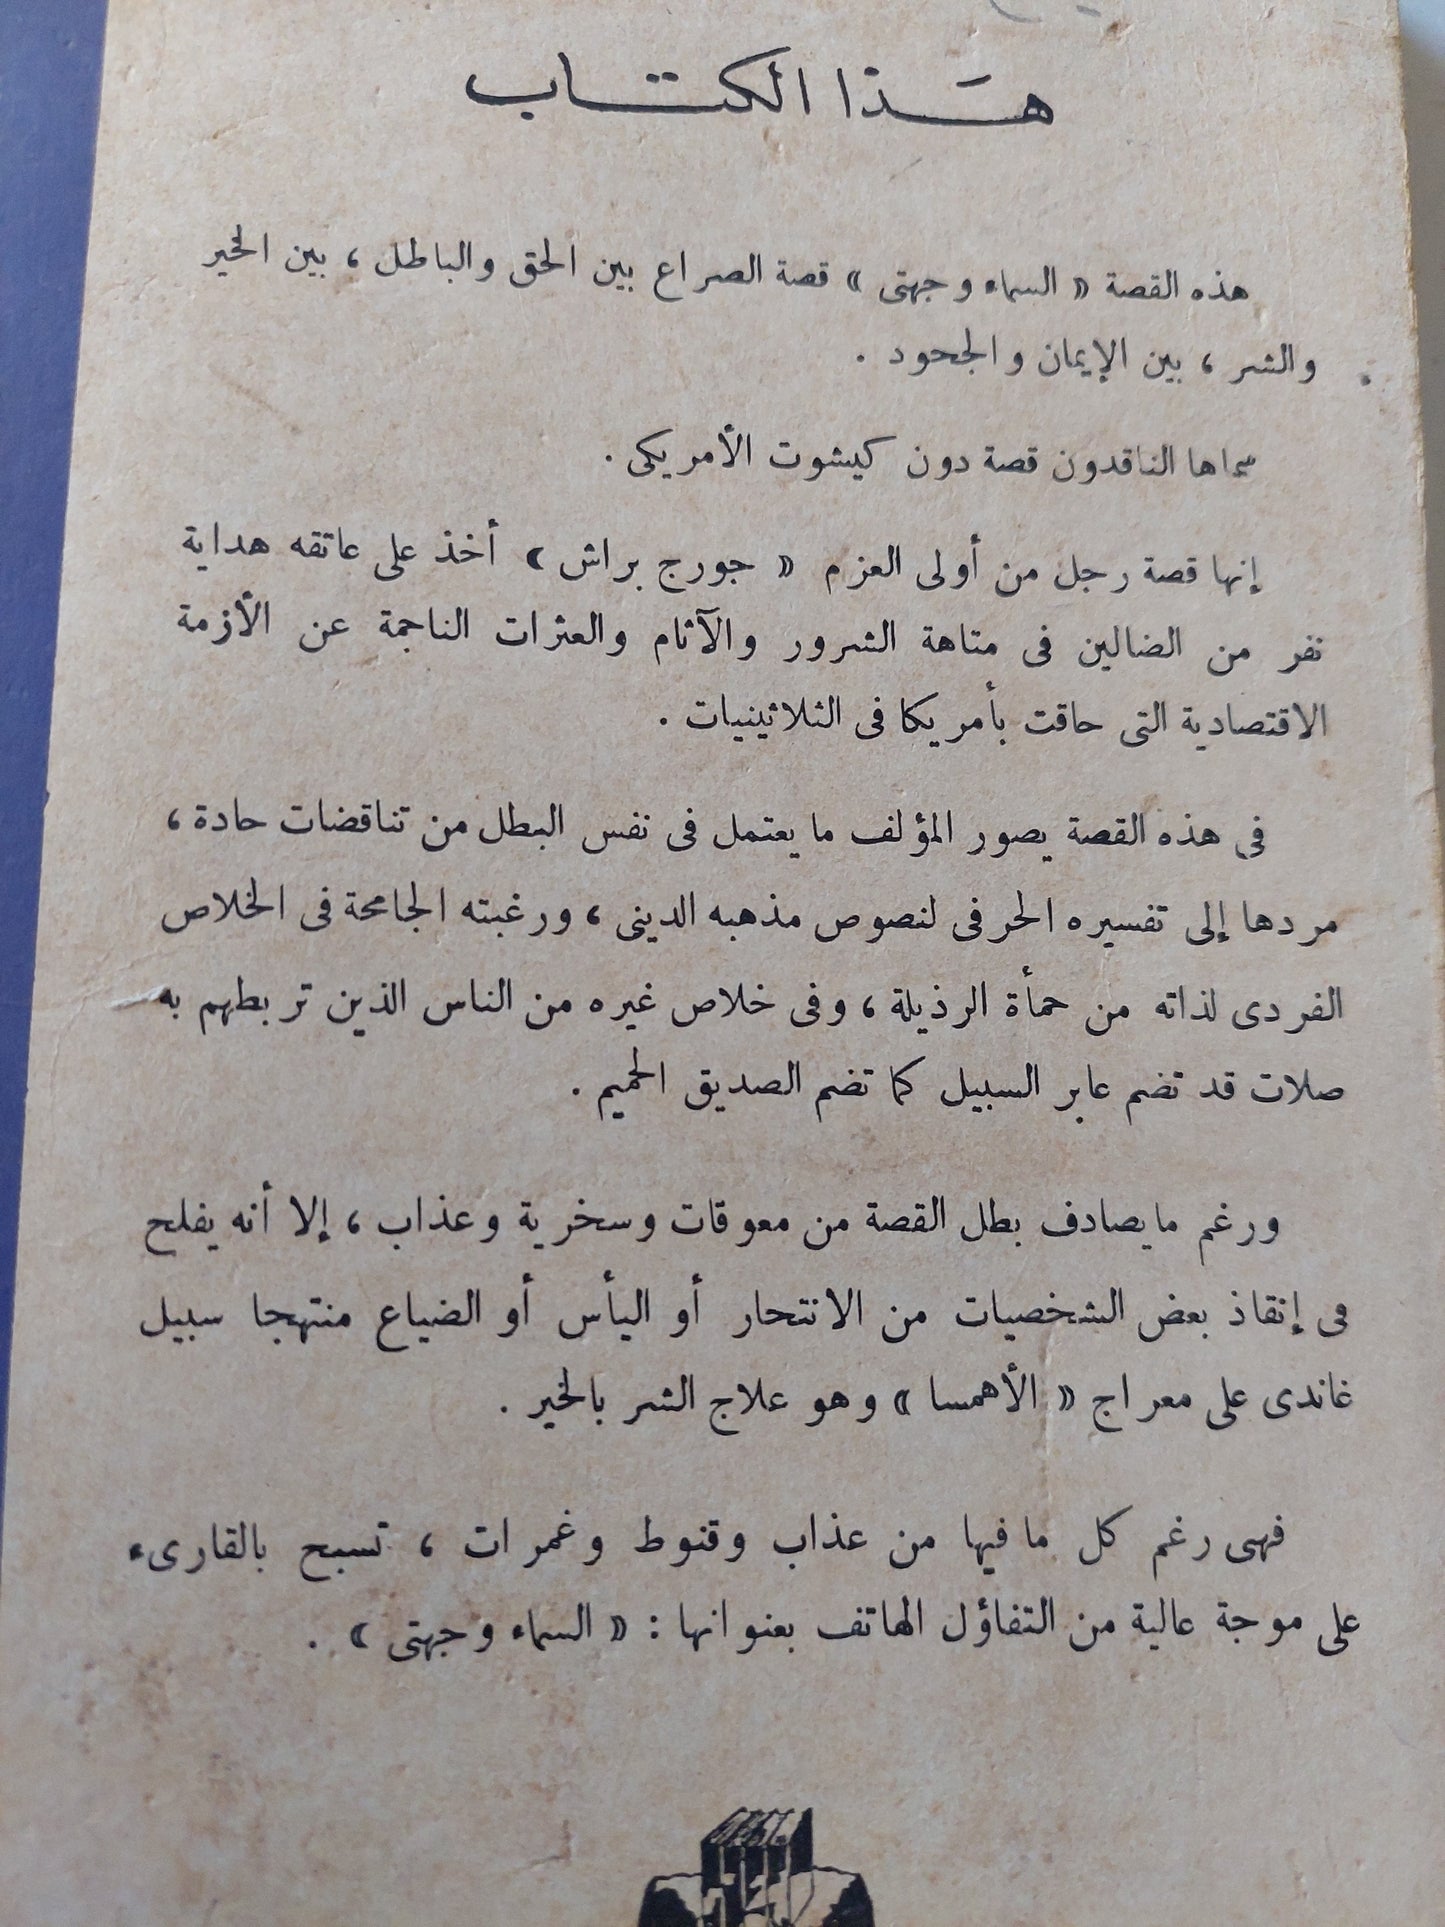 هذا الكتاب
هذه القصة « السماء وجهتى » قصة الصراع بين الحق والباطل ، بين الخير
والشر ، بين الإيمان والجحود .
سماها الناقدون قصة دون كيشوت الأمريكى .
إنها قصة رجل من أولى العزم « جورج براش » أخذ على عاتقه هداية
نفر من الضالين فى متاهة الشرور والآثام والعثرات الناجمة عن الأزمة
الاقتصادية التى حاقت بأمريكا فى الثلاثينيات .
فى هذه القصة يصور المؤلف ما يعتمل فى نفس البطل من تناقضات حادة ،
مردها إلى تفسيره الحرفى لنصوص مذهبه الدينى ، ورغبته الجامحة فى الخلاص
الفردى لذاته من حمأة الرذيلة ، وفى خلاص غيره من الناس الذين تربطهم به
صلات قد تضم عابر السبيل كما تضم الصديق الحميم .
ورغم مايصادف بطل القصة من معوقات وسخرية وعذاب ، إلا أنه يفلح
فى إنقاذ بعض الشخصيات من الانتحار أو اليأس أو الضياع منتهجا سبيل
غاندى على معراج « الأهمسا » وهو علاج الشر بالخير .
فهى رغم كل مافيها من عذاب وقنوط وغمرات ، تسبح بالقارىء
على موجة عالية من التفاؤل الهاتف بعنوانها : « السماء وجهتى » .